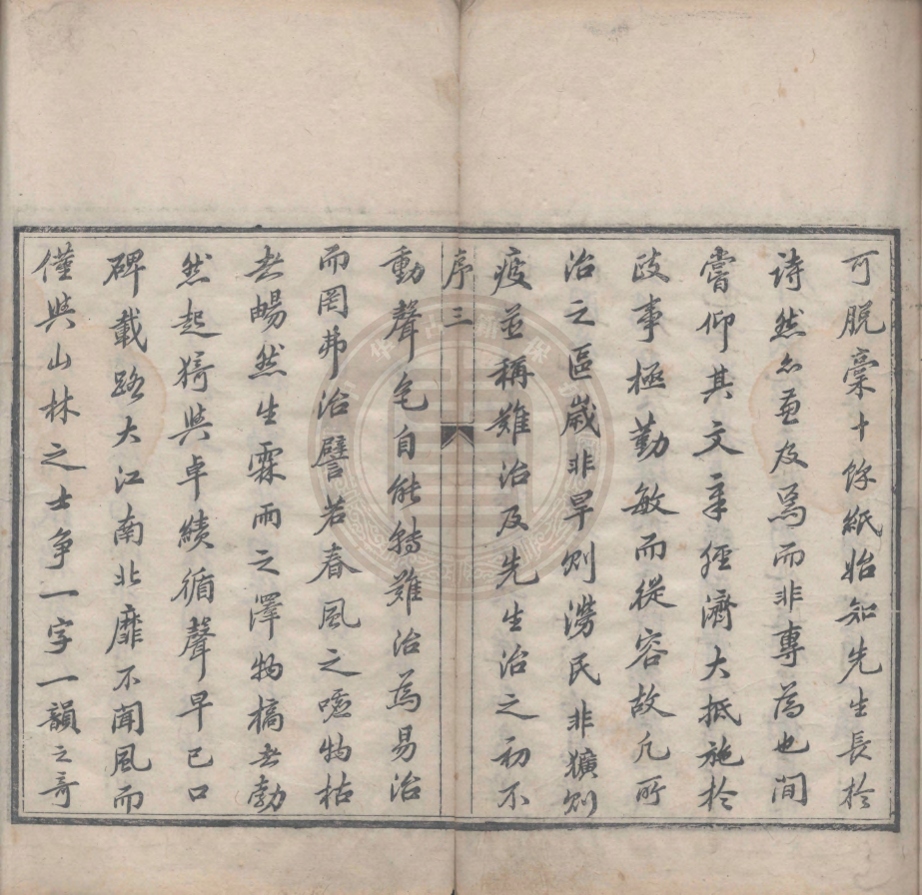 可脫稾十餘紙始知先生長於
詩然亦兼及焉而非專為也間
嘗仰其文章經濟大抵施於
政事極勤敏而從容故凡所
治之區歲非旱則澇民非獷則
疲並稱難治及先生治之初不
序三
動聲色自能轉難治為易治
而罔弗治譬若春風之噓物枯
者暢然生霖雨之澤物槁者勃
然起猗與卓績循聲早已口
碑載路大江南北靡不聞風而
僅與山林之士爭一字一韻之奇